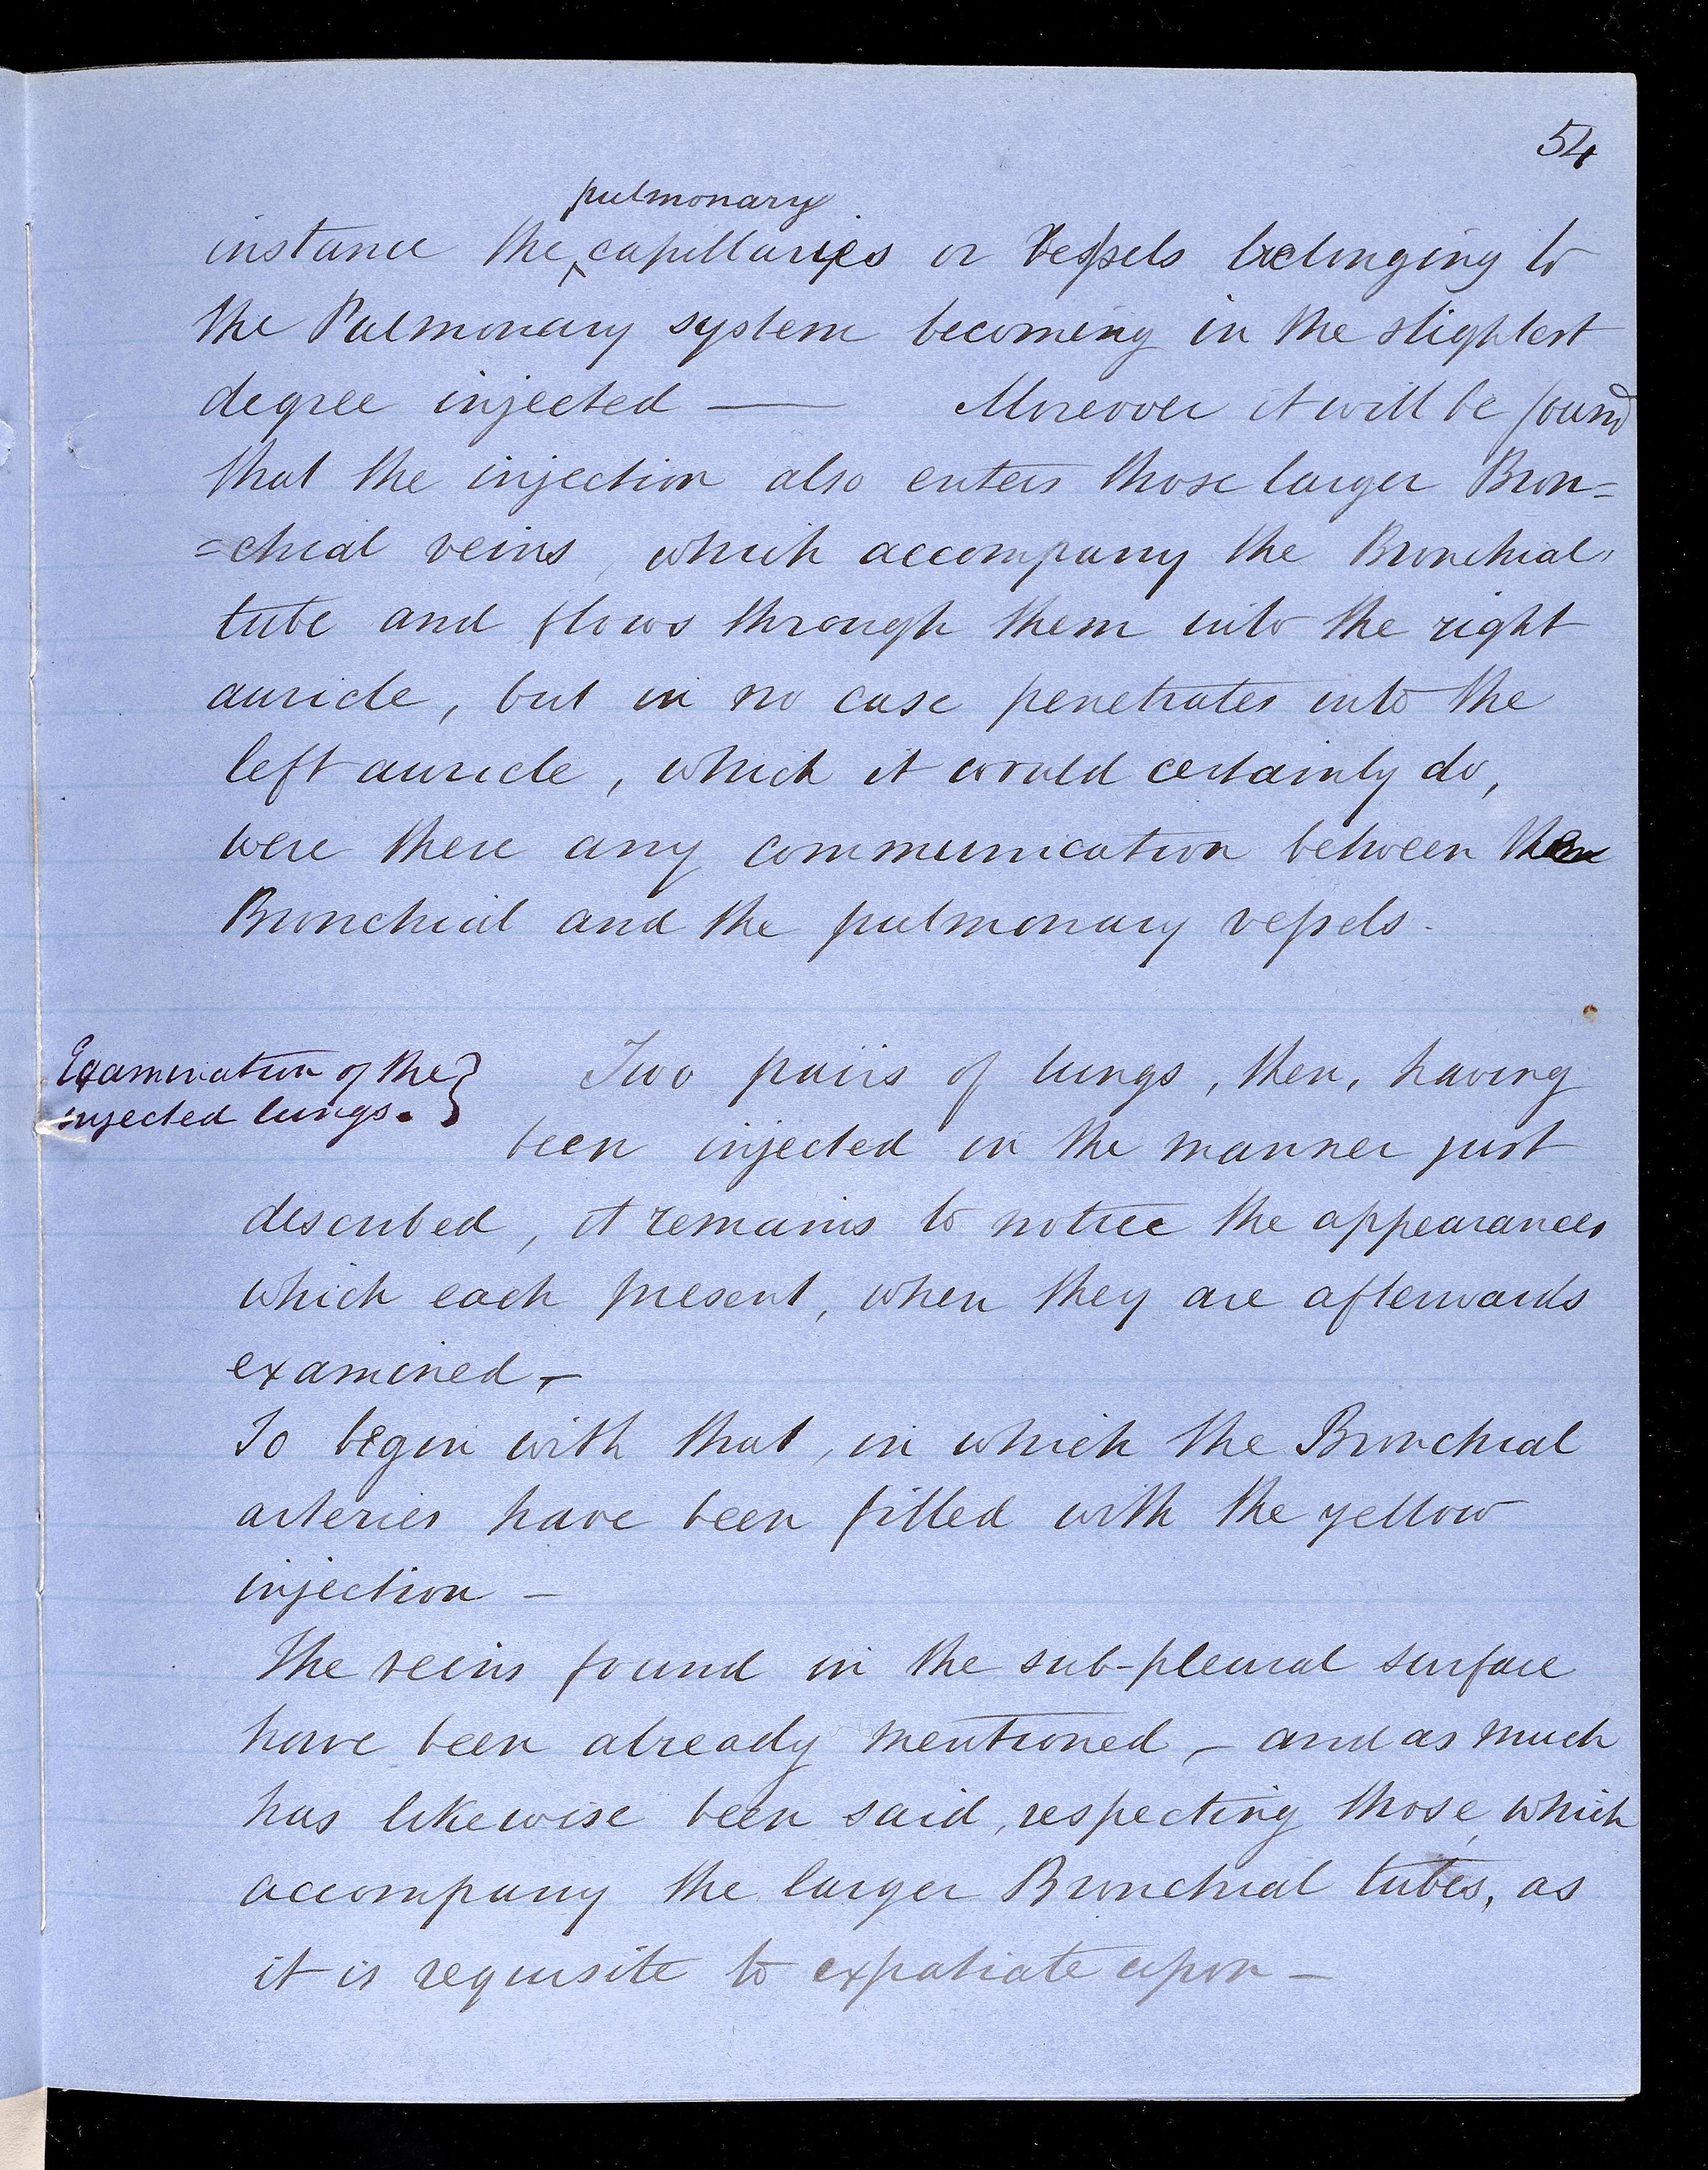 54
pulmonary
instance the capillaries or vessels belonging to
the Pulmonary system becoming in the slightest
degree injected — Moreover it will be found
that the injection also enters those larger Bron=
=chial veins, which accompany the Bronchial
tube and flows through them into the right
auricle, but in no case penetrates into the
left auricle, which it would certainly do,
were there any communication between the
Bronchial and the pulmonary vessels.
Examination of the
injected lungs.
Two pairs of lungs, then, having
been injected in the manner just
described, it remains to notice the appearances
which each present, when they are afterwards
examined –
To begin with that, in which the Bronchial
arteries have been filled with the yellow
injection –
The veins found in the sub-pleural surface
have been already mentioned – and as much
has likewise been said, respecting those, which
accompany the larger Bronchial tubes, as
it is requisite to expatiate upon –